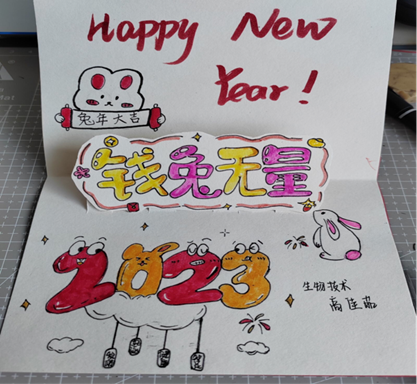 Happy New
Year!
兔年大吉
钱兔无量
2023
生物技术